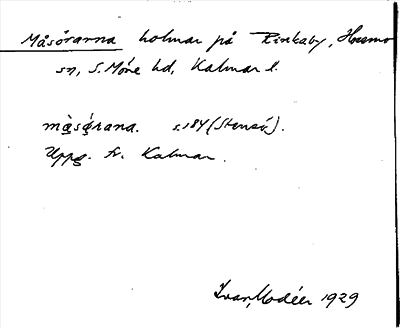 Måsörarna holmar på Rinkaby, Hossmo
sn, S. Möre hd, Kalmar l.
må̀sǿrana. s. 184 (Stensö).
Uppg. fr. Kalmar.
Ivar Modéer 1929